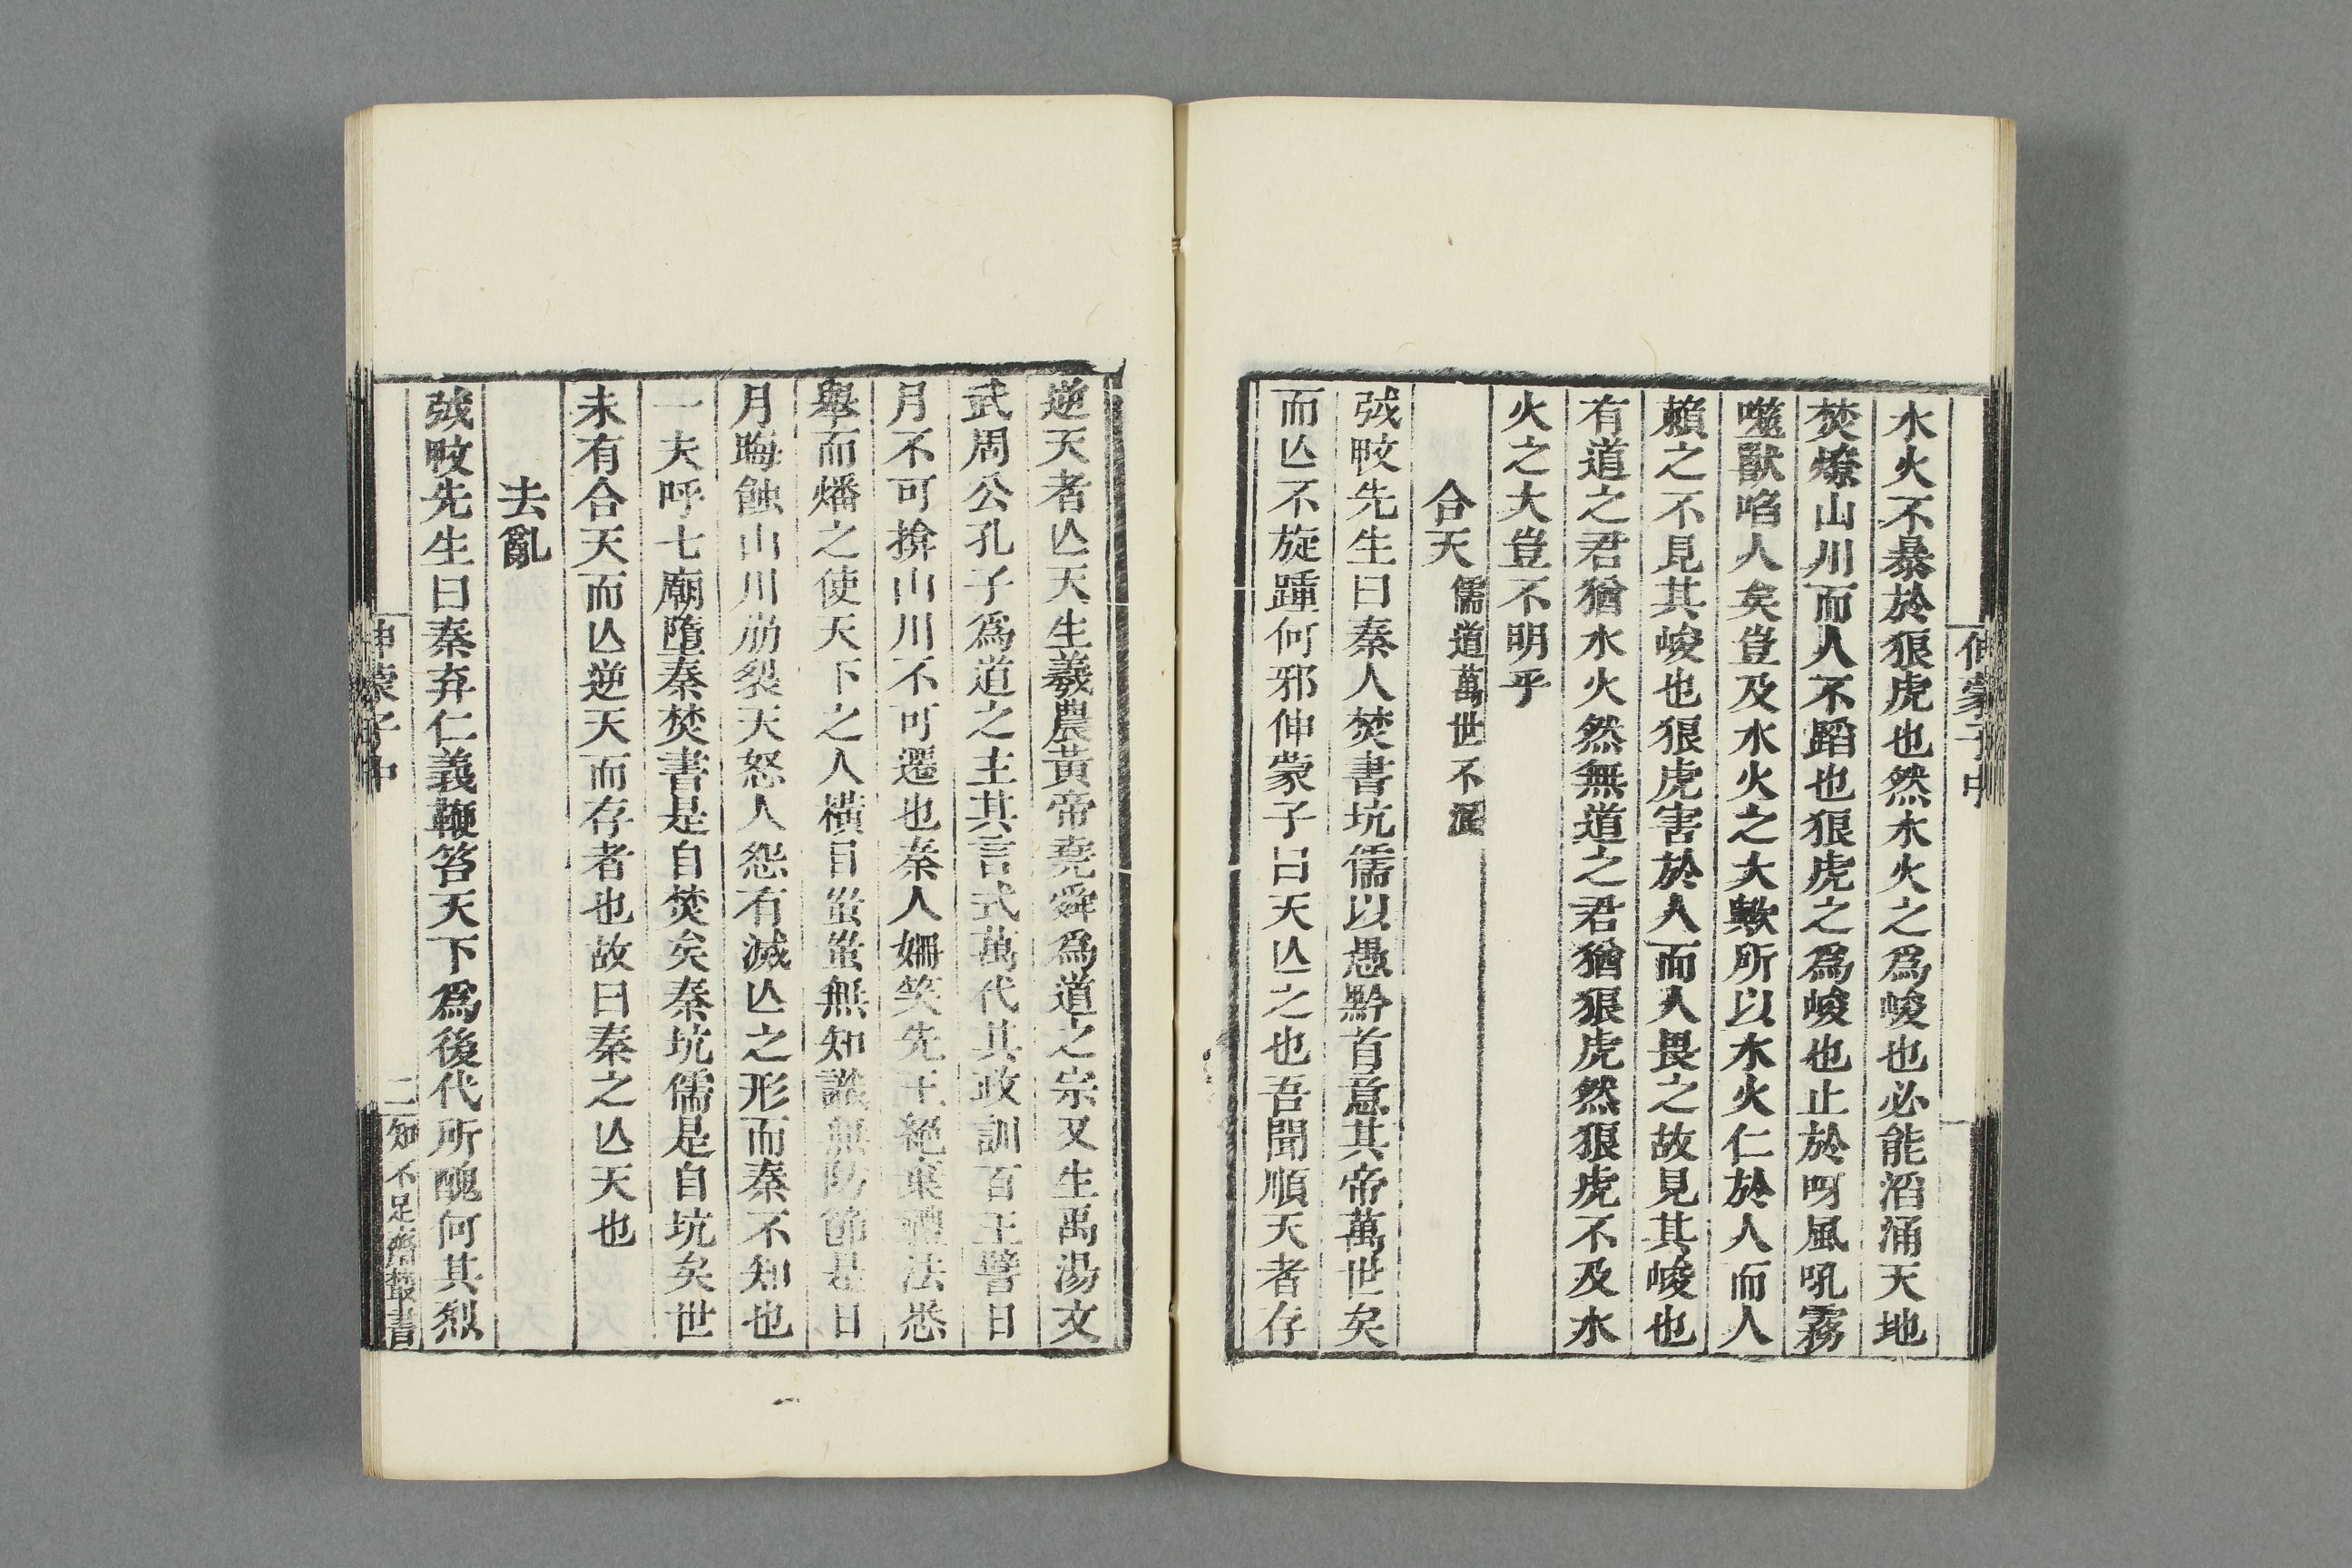 水火不暴於狠虎也然水火之爲峻也必能滔涌天地
焚燎山川而人不蹈也狠虎之爲峻也止於呀風吼霧
噬獸啗人矣豈及水火之大歟所以水火仁於人而人
賴之不見其峻也狠虎害於人而人畏之故見其峻也
有道之君猶水火然無道之君猶狠虎然狠虎不及水
火之大豈不明乎
合天 儒道萬世不泯
彧䟦先生曰秦人焚書坑儒以愚黔首意其帝萬世矣
而亾不旋踵何邪伸蒙子曰天亾之也吾聞順天者存
逆天者亾天生羲農黃帝堯舜爲道之宗又生禹湯文
武周公孔子爲道之主其言式萬代其政訓百王譬日
月不可揜山川不可遷也秦人姍笑先王絕棄禮法悉
舉而燔之使天下之人橫目蚩蚩無知識無防節是日
月晦蝕山川崩裂天怒人怨有滅亾之形而秦不知也
一夫呼七廟隳秦焚書是自焚矣秦坑儒是自坑矣世
未有合天而亾逆天而存者也故曰秦之亾天也
去亂
先生曰秦弃仁義鞭笞天下爲後代所醜何其烈
伸蒙子中
二
知不足齋叢書